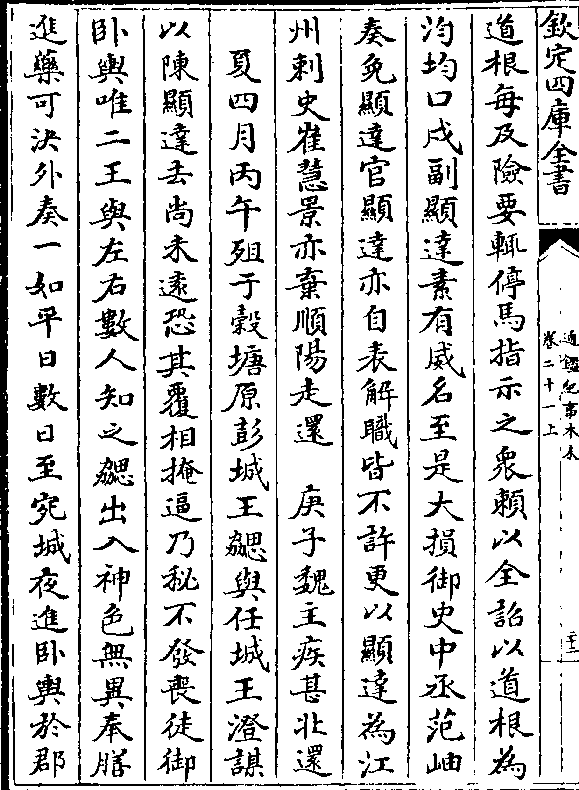 欽定四庫全書
通鑑紀事本末
卷二十一上
三十三
道根每及險要輒停馬指示之衆賴以全詔以道根為
汮均口戍副顯達素有威名至是大損御史中丞范岫
奏免顯達官顯達亦自表解職皆不許更以顯達為江
州刺史崔慧景亦棄順陽走還　庚子魏主疾甚北還
夏四月丙午殂于穀塘原彭城王勰與任城王澄謀
以陳顯達去尚未遠恐其覆相掩逼乃秘不發喪徒御
卧輿唯二王與左右數人知之勰出入神色無異奉膳
進藥可決外奏一如平日數日至宛城夜進卧輿於郡